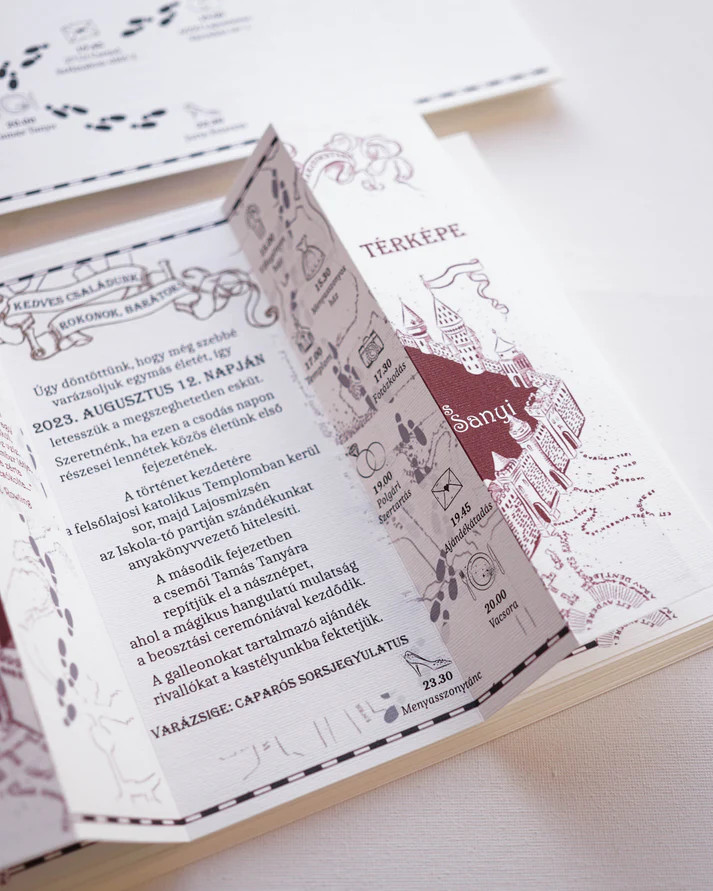 KEDVES CSALÁDUNK,
ROKONOK, BARÁTOK
Úgy döntöttünk, hogy még szebbé
varázsoljuk egymás életét, így
2023. AUGUSZTUS 12. NAPJÁN
letesszük a megszeghetetlen esküt.
Szeretnénk, ha ezen a csodás napon
részesei lennétek közös életünk első
fejezetének.
A történet kezdetére
a felsőlajosi katolikus Templomban kerül
sor, majd Lajosmizsén
az Iskola-tó partján szándékunkat
anyakönyvvezető hitelesíti.
A második fejezetben
a csemői Tamás Tanyára
repítjük el a násznépet,
ahol a mágikus hangulatú mulatság
a beosztási ceremóniával kezdődik.
A galleonokat tartalmazó ajándék
rivallókat a kastélyunkba fektetjük.
VARÁZSIGE: CAPARÓS SORSJEGYULATUS
15.30
Menyasszonyos
ház
17.00
17.30
Fotózkodás
19.00
Polgári
Szertartás
19.45
Ajándékátadás
20.00
Vacsora
23.30
Menyasszonytánc
TÉRKÉPE
s Sanyi